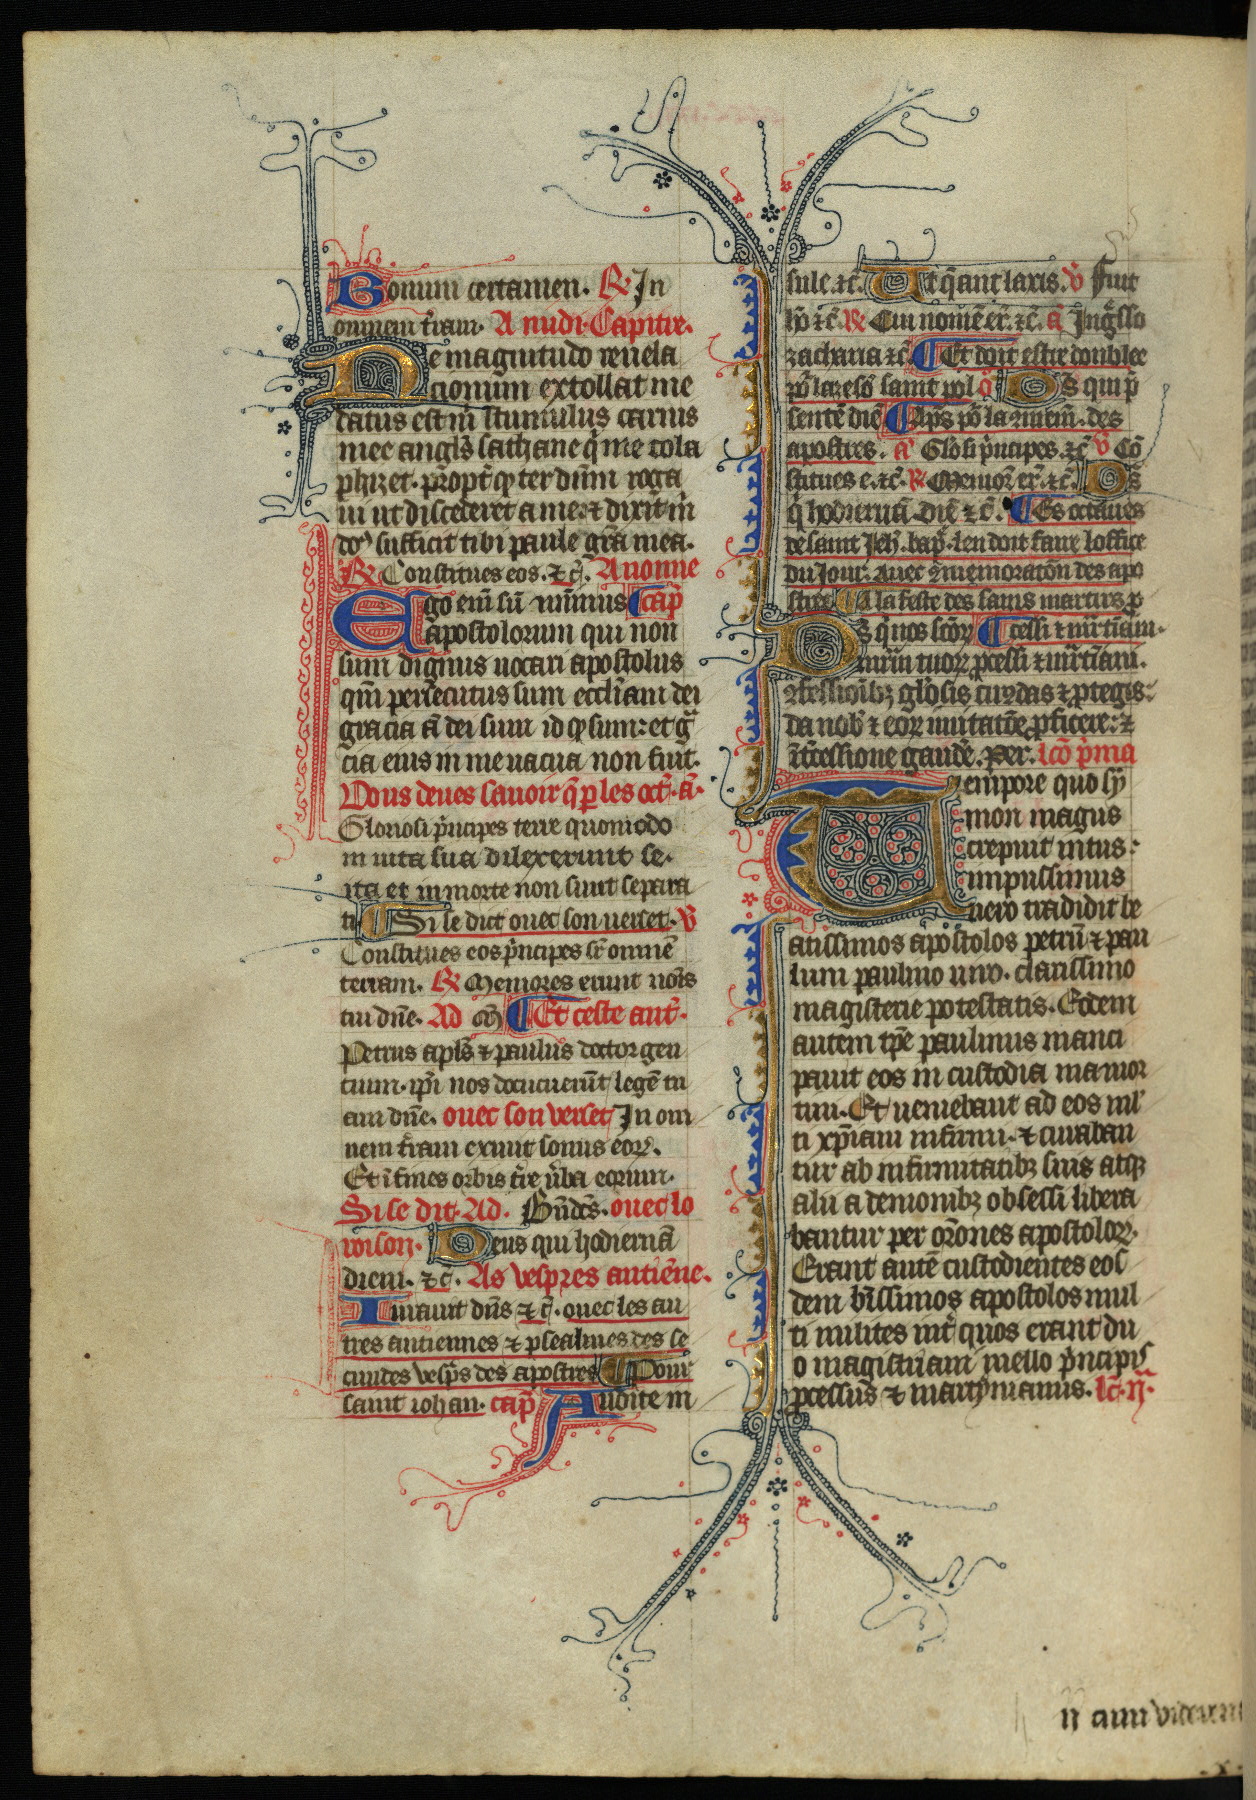 Bonum certamen. ℟ In
omnem t̄ram. A nudi. Capitre.
Ne magnitudo reuela
cionum extollat me
datus est m̄ stimulus carnis
mee angl̄s sathane q̄ me cola
phizet. ꝓpt̄ qͥ ter dn̄m roga
ui ut discederet a me: ⁊ dixit m̄
dn̄s sufficit tibi paule gr̄a mea.
℟ Constitues eos. ⁊ c̄. A nonne
Ego em̄ sū minimus cap̄
apostolorum qui non
sum dignus uocari apostolus
qm̄ persecutus sum eccl̄iam dei
gracia a᷒ dei sum id qͥ sum: et gͣ
cia eius in me uacua non fuit.
Vous deues sauoir q̄ p les oct̄. a᷒.
Gloriosi pͥncipes terre quomodo
in uita sua dilexerunt se.
ita et in morte non sunt separa
ti Si se dict ouec son uerset. ℣
Constitues eos pͥncipes sr̄ omnē
terram. ℟ Memores erunt nōis
tui dn̄e. Ad Et ceste ant̄.
Petrus apl̄s ⁊ paulus doctor gen
cium. ip̄i nos docuerūt legē tu
am dn̄e. ouec son verset In om
nem t̄ram exiuit sonus eoꝝ.
Et ī fines orbis t̄re ūba eorum.
Si se dit. Ad. Bn̄dc̄s. ouec lo
roison. Deus qui hodiernā
diem. ⁊c̄. As vespres antiēne.
Iurauit dn̄s ⁊ c̄. ouec les au
tres antiennes ⁊ psealmes des se
cundes vesp̄s des apostres Pour
saint iohan. cap̄ Audite in
sule. ⁊c̄. Ut q̄ant laxis. ℣ Fuit
hō ⁊c̄. ℟ Cui nomē er̄. ⁊c̄. a᷒ Ingr̄sso
zacharia ⁊c̄. Et doit estre doublee
saint pol Ds̄ qui p̄
sentē diē des
apostres. a᷒ Gl̄osi pͥncipes. ⁊c̄ ℣ Cō
stitues e. ⁊c̄. ℟ Memor̄ er̄. ⁊c̄. Ds̄
q̄ hodiernā. diē ⁊ c̄. Es octaues
de saint Jeh̄. bap̄. len doit faire loffice
du iour. auec ꝯmemoratōn des apo
stres A la feste des sains martirs ꝓ
Ds̄ q̄ nos sc̄oꝝ ꝓcessi ⁊ mr̄tiniani.
mr̄m tuoꝝ ꝓcessi ⁊ mr̄tiniani.
ꝯfessiōibꝫ gl̄osis cir̄das ⁊ ꝓtegis:
da nob̄ ⁊ eoꝝ imitatōe ꝓficere: ⁊
īt̄cessione gaudē. Per. lcō pͥma
Tempore quo sy
mon magus
crepuit intus:
impiissimus
nero tradidit be
atissimos apostolos petrū ⁊ pau
lum paulino uiro. clarissimo
magisterie potestatis. Eodem
autem tp̄e paulinus manci
pauit eos in custodia mamor
tini. Et ueniebant ad eos ml̄
ti xp̄iani infirmi. ⁊ curaban
tur ab infirmitatibꝫ suis atqꝫ
alii a demonibꝫ obsessi libera
bantur per or̄ones apostoloꝝ.
Erant autē custodientes eos
dem b̄issimos apostolos mul
ti milites int̄ quos erant du
o magistriani mello pͥncipis
ꝓcessus ⁊ martynianus. lc̄. ij.